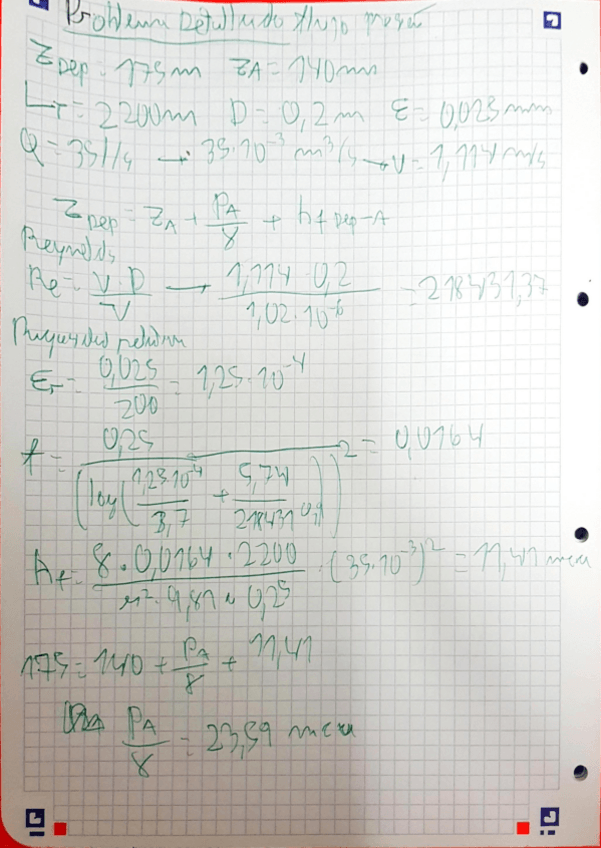 Problema Detallado flujo presa
Z Dep = 175m ZA = 140m
LT = 2200m D = 0,2m ε = 0,025mm
Q = 35 l/s → 35·10⁻³ m³/s → V = 1,114 m/s
Z Dep = ZA + PA/γ + hf Dep-A
Reynolds
Re = V·D/ν → 1,114·0,2/1,02·10⁻⁶ = 218431,37
Rugosidad relativa
εr = 0,025/200 = 1,25·10⁻⁴
f = 0,25/(log(1,25·10⁻⁴/3,7 + 5,74/218431^0,9))² = 0,0164
hf = 8·0,0164·2200/π²·9,81·0,2⁵ · (35·10⁻³)² = 11,41 mca
175 = 140 + PA/γ + 11,41
PA/γ = 23,59 mca